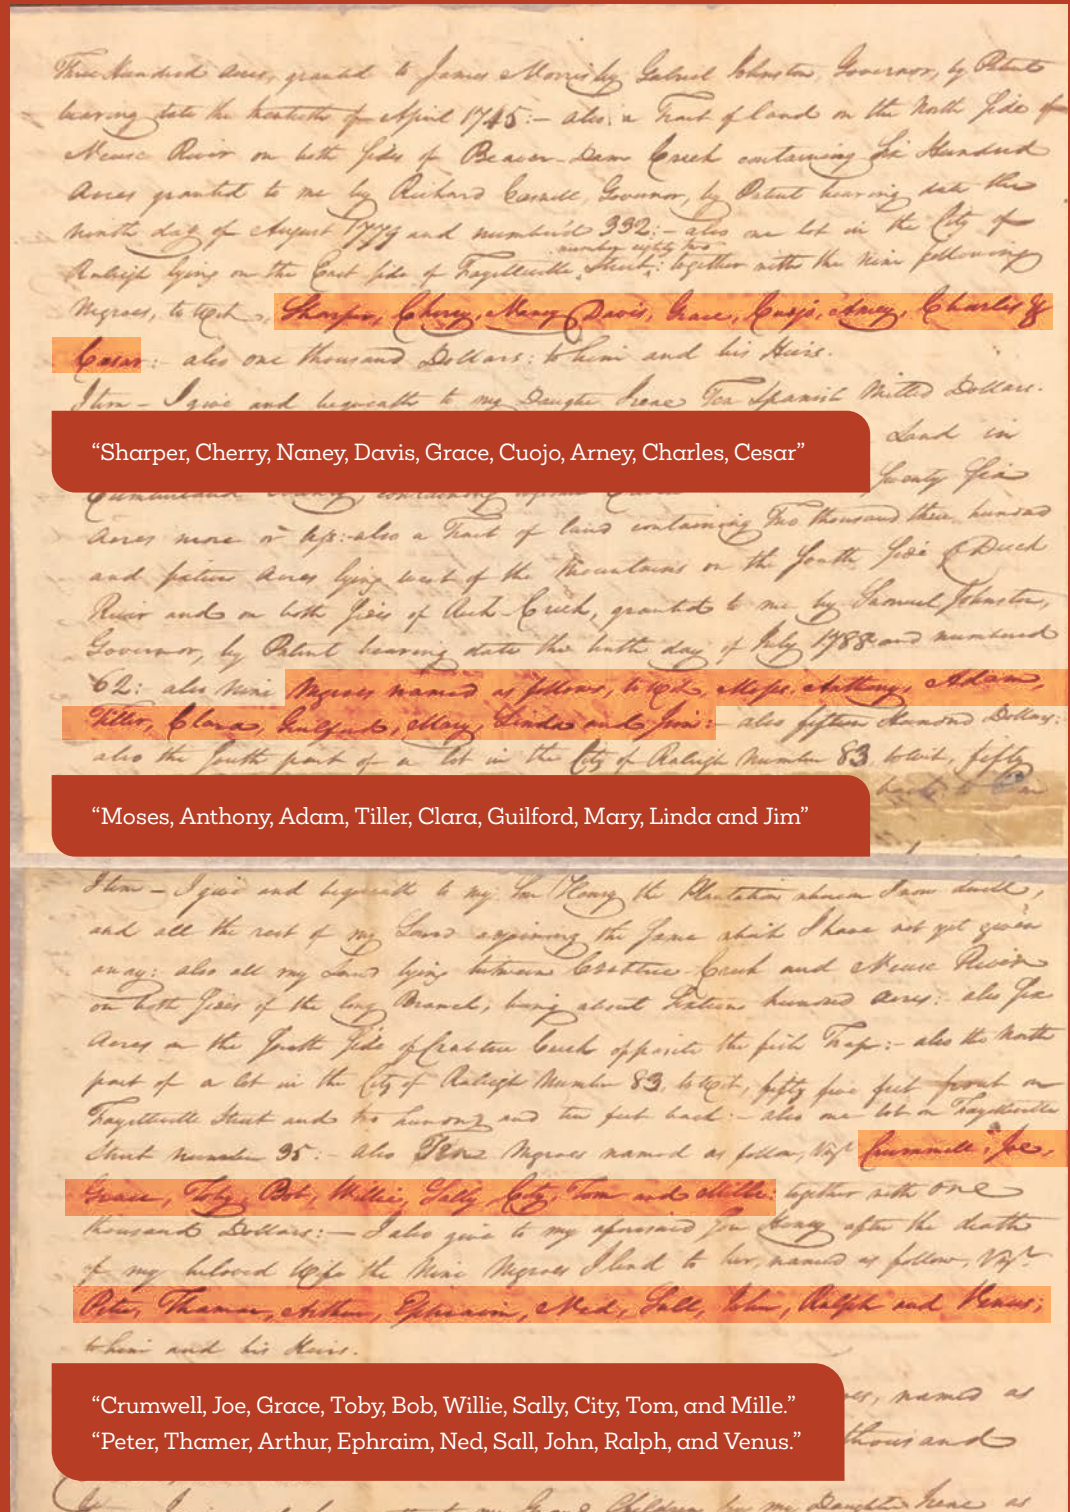 Three Hundred Acres, granted to James Morris by Gabriel Johnston, Governor, by Patent
bearing date the twentieth of April 1745:– also a Tract of land on the North Side of
Neuse River on both Sides of Beaver-Dam Creek containing Six Hundred
Acres granted to me by Richard Caswell, Governor, by Patent bearing date the
ninth day of August 1779 and number'd 332:– also one lot in the City of
number eighty two
Raleigh lying on the East Side of Fayetteville Street: together with the nine following
Negroes, to wit, Sharper, Cherry, Naney, Davis, Grace, Cuojo, Arney, Charles &
Cesar:– also one thousand Dollars: to him and his Heirs.
Item – I give and bequeath to my Daughter Irene Ten Spanish Milled Dollars.
“Sharper, Cherry, Naney, Davis, Grace, Cuojo, Arney, Charles, Cesar”
Land in
Cumberland County, containing
Twenty Six
Acres more or less:– also a Tract of land containing Two thousand three hundred
and Acres lying west of the Mountains on the South Side of Duck
River and on both Sides of Creek, granted to me by Samuel Johnston,
Governor, by Patent bearing date the tenth day of July 1788 and numbered
62: also Nine Negroes named as follows, to wit, Moses, Anthony, Adam,
Tiller, Clara, Guilford, Mary, Linda and Jim:– also fifteen Hundred Dollars:
also the South part of a lot in the City of Raleigh Number 83, to wit, fifty
back to
“Moses, Anthony, Adam, Tiller, Clara, Guilford, Mary, Linda and Jim”
Item – I give and bequeath to my Son Henry the Plantation whereon I now dwell,
and all the rest of my Land adjoining the same which I have not yet given
away: also all my Land lying between Crabtree Creek and Neuse River
on both Sides of the long Branch, being about Sixteen hundred Acres: also Six
Acres on the South Side of Crabtree Creek opposite the fish Trap:– also the North
part of a lot in the City of Raleigh Number 83, to wit, fifty five feet front on
Fayetteville Street and two hundred and ten feet back:– also one lot on Fayetteville
Street number 35:– also Ten Negroes named as follow, Viz. Crumwell, Joe,
Grace, Toby, Bob, Willie, Sally, City, Tom and Mille: together with one
thousand Dollars:– I also give to my aforesaid Son Henry after the death
of my beloved Wife the Nine Negroes I lend to her, named as follow, Viz.
Peter, Thamer, Arthur, Ephraim, Ned, Sall, John, Ralph and Venus;
to him and his Heirs.
“Crumwell, Joe, Grace, Toby, Bob, Willie, Sally, City, Tom, and Mille.”
“Peter, Thamer, Arthur, Ephraim, Ned, Sall, John, Ralph, and Venus.”
named as
thousand
my Grand Children by my Daughter Irene as